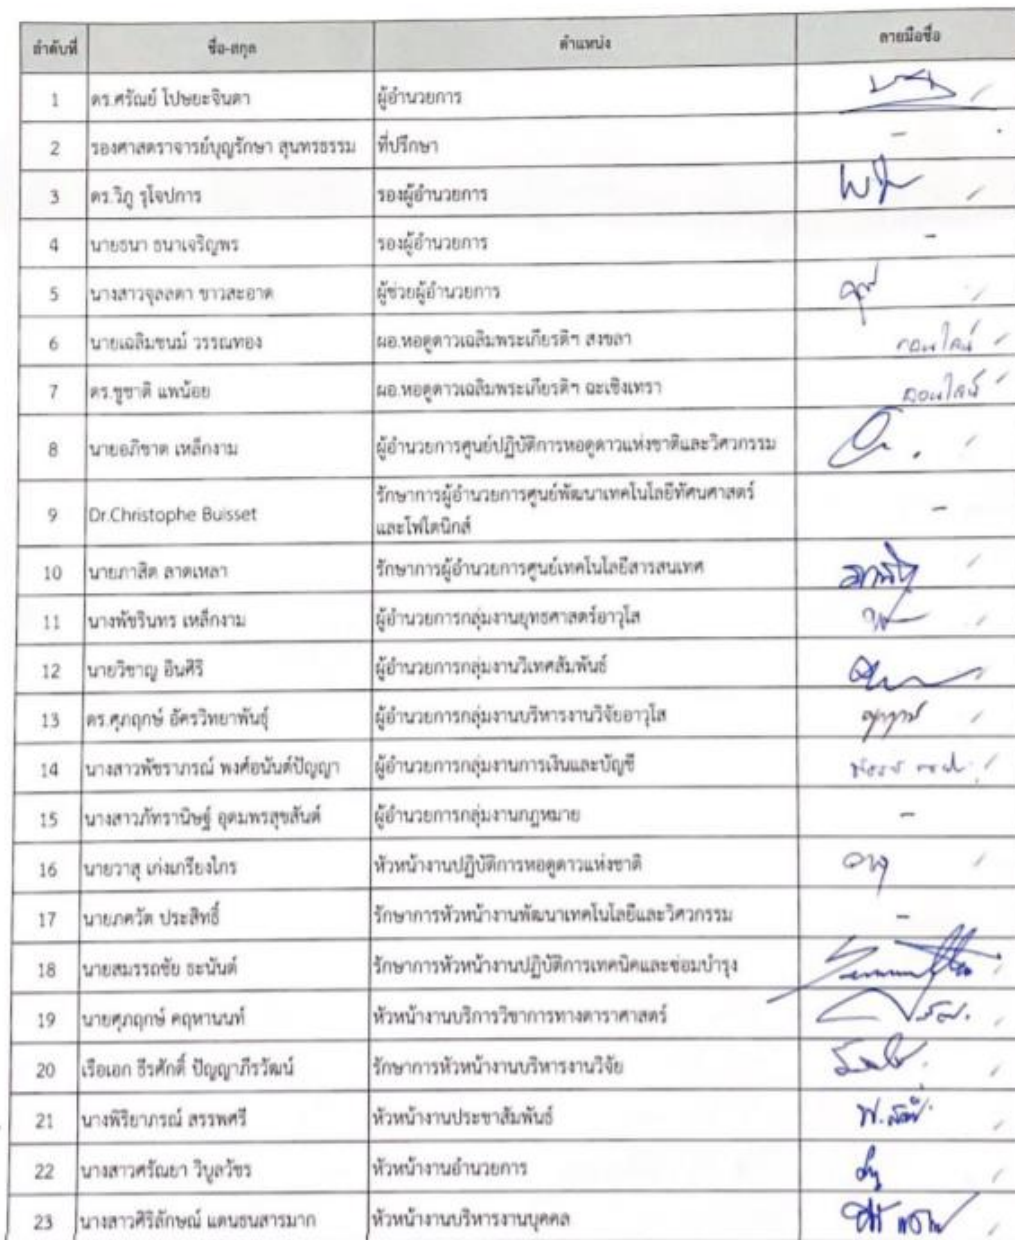 ลำดับที่ ชื่อ-สกุล ตำแหน่ง ลายมือชื่อ
1 ดร.ศรัณย์ โปษยะจินดา ผู้อำนวยการ
2 รองศาสตราจารย์บุญรักษา สุนทรธรรม ที่ปรึกษา -
3 ดร.วิภู รุโจปการ รองผู้อำนวยการ
4 นายธนา ธนาเจริญพร รองผู้อำนวยการ -
5 นางสาวจุลลดา ขาวสะอาด ผู้ช่วยผู้อำนวยการ
6 นายเฉลิมชนม์ วรรณทอง ผอ.หอดูดาวเฉลิมพระเกียรติฯ สงขลา ออนไลน์
7 ดร.ชูชาติ แพน้อย ผอ.หอดูดาวเฉลิมพระเกียรติฯ ฉะเชิงเทรา ออนไลน์
8 นายอภิชาต เหล็กงาม ผู้อำนวยการศูนย์ปฏิบัติการหอดูดาวแห่งชาติและวิศวกรรม
9 Dr.Christophe Buisset รักษาการผู้อำนวยการศูนย์พัฒนาเทคโนโลยีทัศนศาสตร์ -
และโฟโตนิกส์
10 นายภาสิต ลาดเหลา รักษาการผู้อำนวยการศูนย์เทคโนโลยีสารสนเทศ
11 นางพัชรินทร เหล็กงาม ผู้อำนวยการกลุ่มงานยุทธศาสตร์อาวุโส
12 นายวิชาญ อินศิริ ผู้อำนวยการกลุ่มงานวิเทศสัมพันธ์
13 ดร.ศุภฤกษ์ อัครวิทยาพันธุ์ ผู้อำนวยการกลุ่มงานบริหารงานวิจัยอาวุโส
14 นางสาวพัชราภรณ์ พงศ์อนันต์ปัญญา ผู้อำนวยการกลุ่มงานการเงินและบัญชี
15 นางสาวภัทรานิษฐ์ อุดมพรสุขสันต์ ผู้อำนวยการกลุ่มงานกฎหมาย -
16 นายวาสุ เก่งเกรียงไกร หัวหน้างานปฏิบัติการหอดูดาวแห่งชาติ
17 นายภควัต ประสิทธิ์ รักษาการหัวหน้างานพัฒนาเทคโนโลยีและวิศวกรรม -
18 นายสมรรถชัย ธะนันต์ รักษาการหัวหน้างานปฏิบัติการเทคนิคและซ่อมบำรุง
19 นายศุภฤกษ์ คฤหานนท์ หัวหน้างานบริการวิชาการทางดาราศาสตร์
20 เรือเอก ธีรศักดิ์ ปัญญาภีรวัฒน์ รักษาการหัวหน้างานบริหารงานวิจัย
21 นางพิริยาภรณ์ สรรพศรี หัวหน้างานประชาสัมพันธ์
22 นางสาวศรัณยา วิบูลวัชร หัวหน้างานอำนวยการ
23 นางสาวศิริลักษณ์ แดนธนสารมาก หัวหน้างานบริหารงานบุคคล